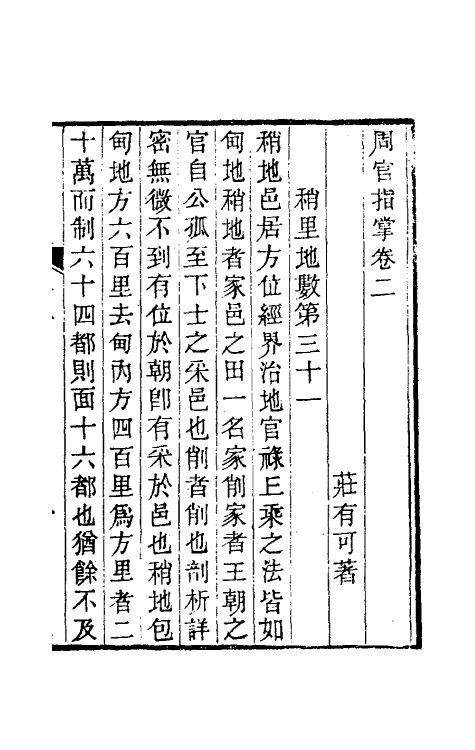 周官指掌卷二
莊有可著
稍里地數第三十一
稍地邑居方位經界治地官祿王乘之法皆如
甸地稍地者家邑之田一名家削家者王朝之
官自公孤至下士之采邑也削者削也剖析詳
密無微不到有位於朝卽有采於邑也稍地包
甸地方六百里去甸內方四百里爲方里者二
十萬而制六十四都則面十六都也猶餘不及